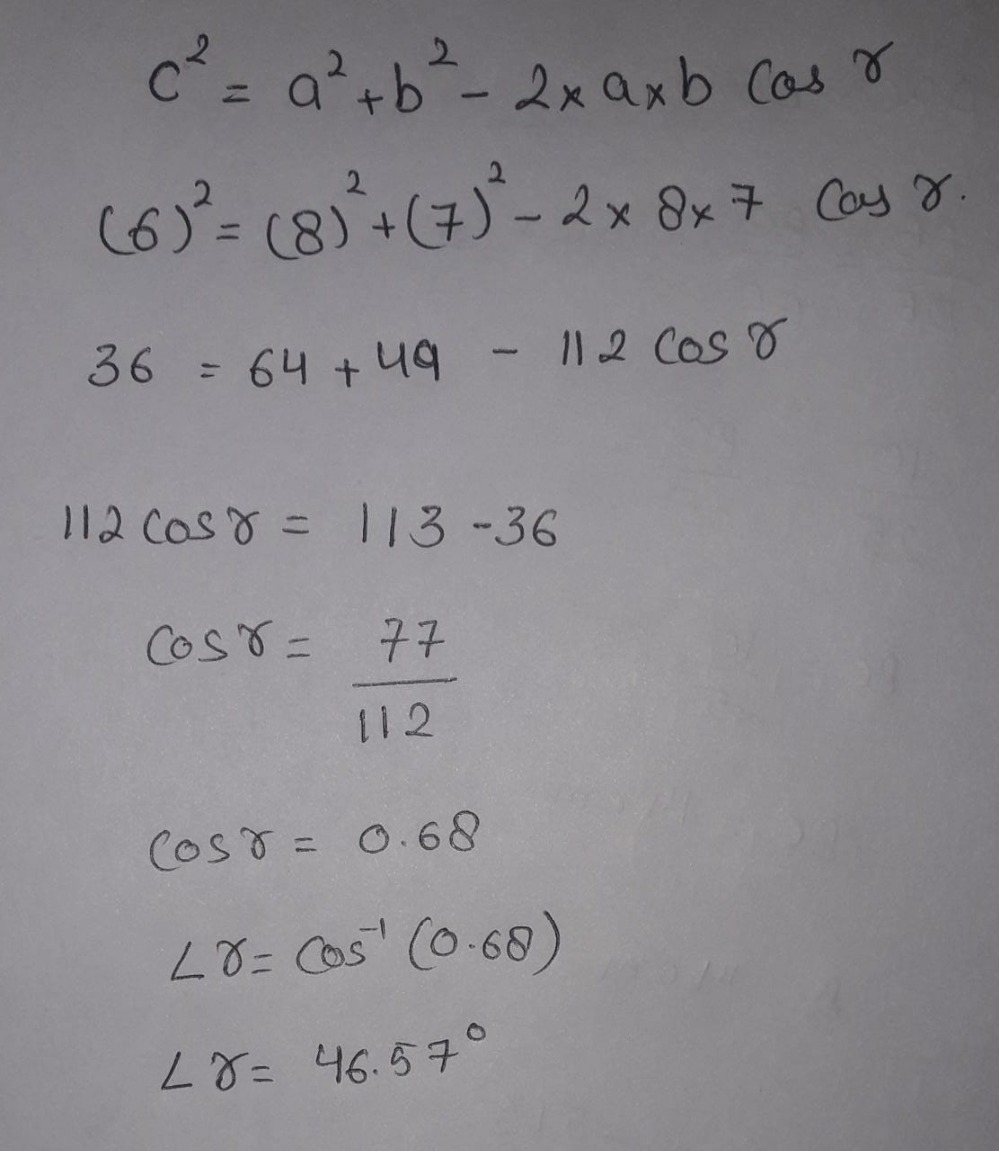 c² = a² + b² - 2 × a × b Cos γ
(6)² = (8)² + (7)² - 2 × 8 × 7 Cos γ.
36 = 64 + 49 - 112 Cos γ
112 Cos γ = 113 - 36
Cos γ = 77
112
Cos γ = 0.68
∠γ = Cos⁻¹ (0.68)
∠γ = 46.57°